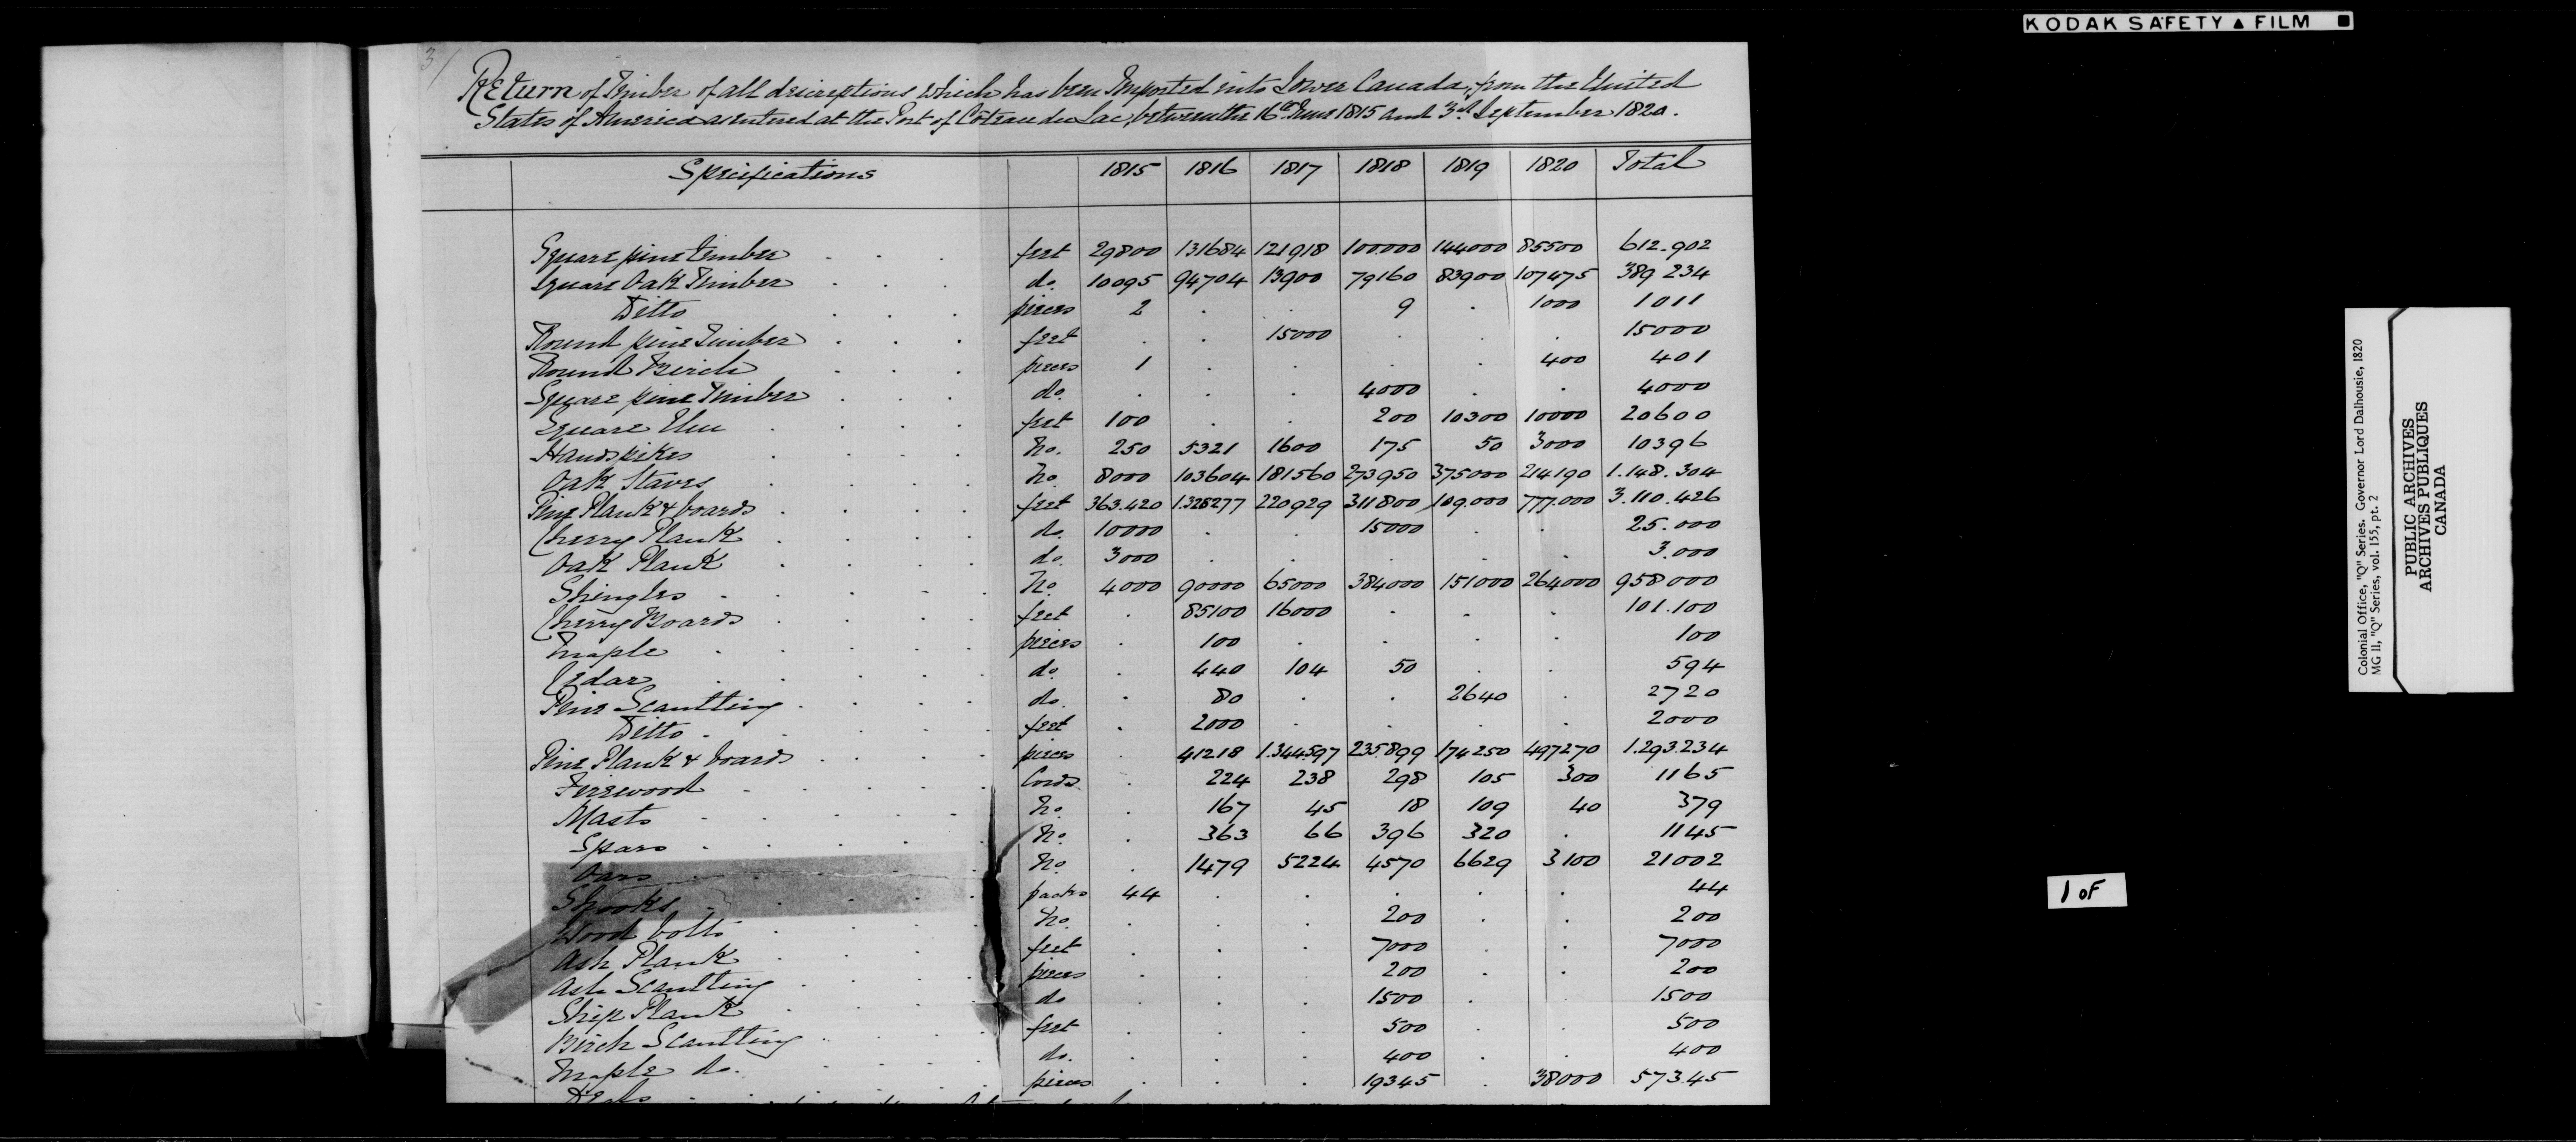 KODAK SAFETY ▲ FILM
3/
Return of Timber of all descriptions which has been Imported into Lower Canada, from the United
States of America as entered at the Port of Coteau du Lac, between the 16th June 1815 and 3d September 1820.
Specifications 1815 1816 1817 1818 1819 1820 Total
Square pine timber . . . feet 29800 131684 121918 100.000 144000 85500 612.902
Square Oak Timber . . . do. 10095 94704 13900 79160 83900 107475 389 234
Ditto . . . pieces 2 . . 9 . 1000 1011
Round pine Timber . . . feet . . 15000 . . . 15000
Round Birch . . . pieces 1 . . . . 400 401
Square pine Timber . . . do. . . . 4000 . . 4000
Square Elm . . . . feet 100 . . 200 10300 10000 20600
Handspikes . . . . No. 250 5321 1600 175 50 3000 10396
Oak Staves . . . . No. 8000 103604 181560 273950 375000 214190 1.148.304
Pine Plank & boards . . . . feet 363.420 1.328277 220929 311800 109.000 777.000 3.110.426
Cherry Plank . . . . do. 10000 . . 15000 . . 25.000
Oak Plank . . . . do. 3000 . . . . . 3.000
Shingles . . . . . No. 4000 90000 65000 384000 151000 264000 958000
Cherry Boards . . . . feet . 85100 16000 . . . 101.100
Maple . . . . . pieces . 100 . . . . 100
Cedar . . . . . do. . 440 104 50 . . 594
Pine Scantling . . . . do. . 80 . . 2640 . 2720
Ditto . . . . . feet . 2000 . . . . 2000
Pine Plank & boards . . . . pieces . 41218 1.344.597 235.899 174250 497270 1.293.234
Firewood . . . . . Cords . 224 238 298 105 300 1165
Masts . . . . . No. . 167 45 18 109 40 379
Spars . . . . . No. . 363 66 396 320 . 1145
Oars . . . . . No. . 1479 5224 4570 6629 3100 21002
Shooks . . . . . packs 44 . . . . . 44
Wood bolts . . . . No. . . . 200 . . 200
Ash Plank . . . . feet . . . 7000 . . 7000
Ash Scantling . . . . pieces . . . 200 . . 200
Ship Plank . . . . do . . . 1500 . . 1500
Birch Scantling . . . . feet . . . 500 . . 500
Maple do. . . . . do. . . . 400 . . 400
pieces . . . 19345 . 38000 57345
Colonial Office, "Q" Series. Governor Lord Dalhousie, 1820
MG 11, "Q" Series, vol. 155, pt. 2
PUBLIC ARCHIVES
ARCHIVES PUBLIQUES
CANADA
1 OF